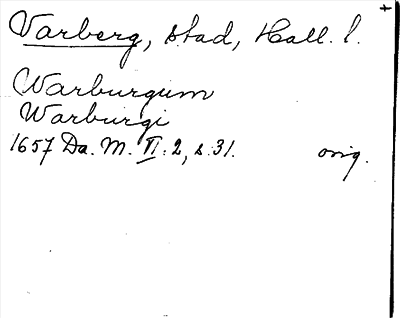 Varberg, stad, Hall. l.
Warburgum
Warburgi
1657 Da. M. VI: 2, s. 31. orig.